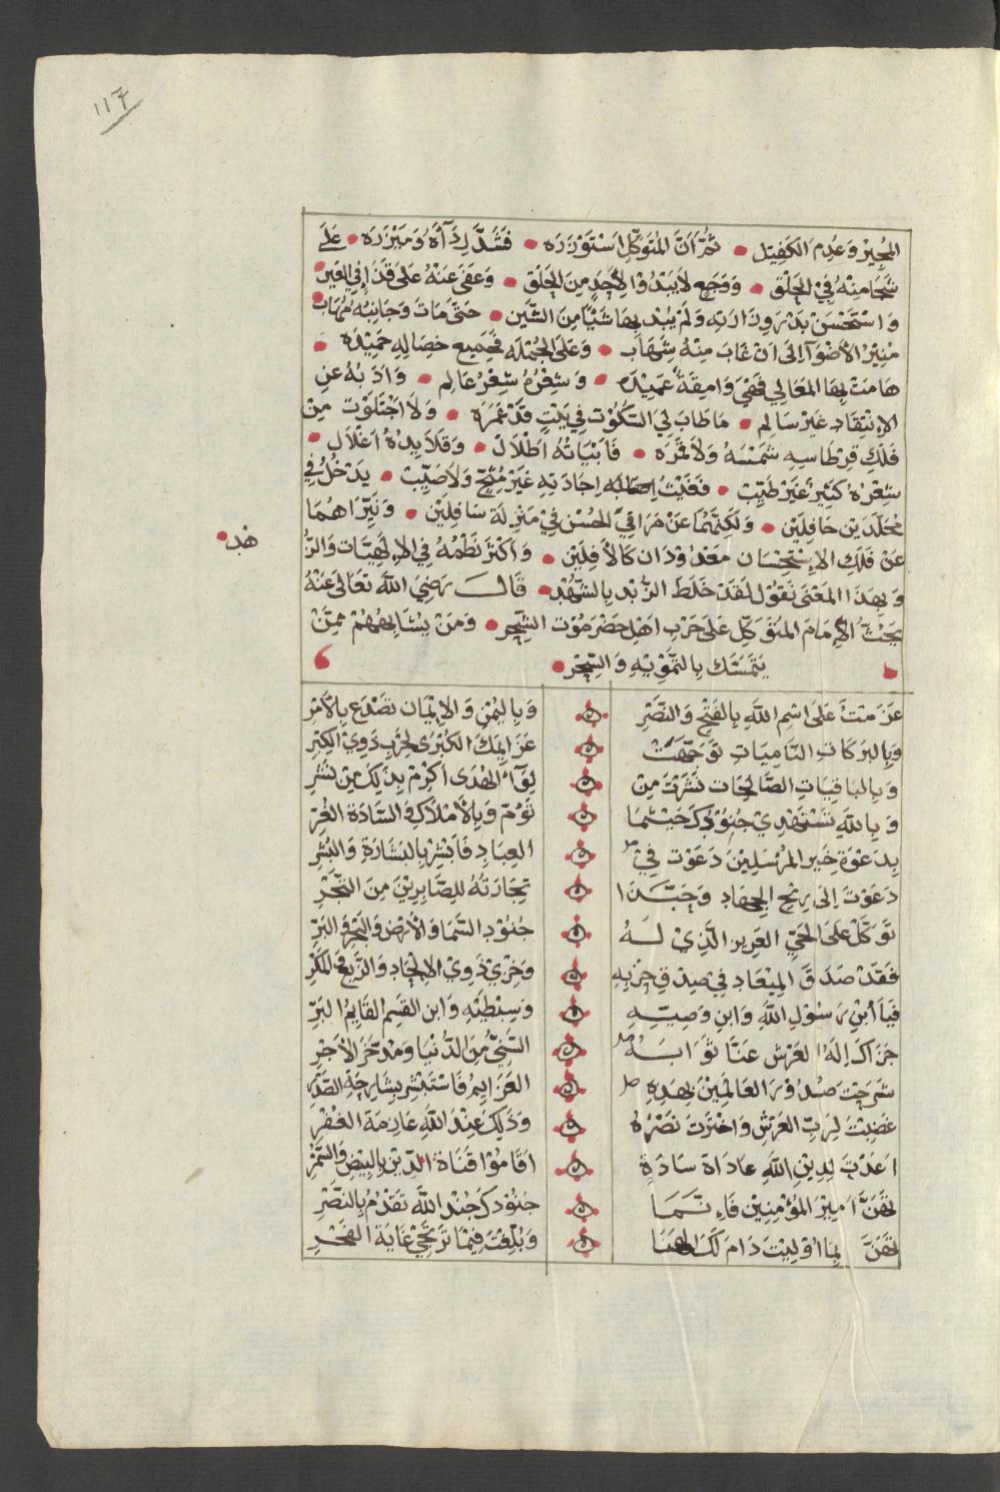 ١١٦
المجير وعدم الكفيل • ثمّ انّ المتوكّل استوزره • فشدّ رداءه وميزره • على
شجا منه في الحلق • ووجع لا يبدوا لاحدٍ من الخلق • وعفى عنه على قذا في العين •
واستحسن بدر وزارته ولم يبد بها شيًا من الشّين • حتّى مات وجانبه مُهاب •
منير الاضوآ الى ان غاب منه شهاب • وعلى الجمله فجميع خصاله حميده •
هامت بها المعالي فهي وامقة عميده • وشعره شعر عالم • وادبه عن
الانتقاد غير سالم • ما طاب لي السكوت في بيتٍ قد عمره • ولا اجتلوت من
فلك قرطاسه شمسه ولا قمره • فابياته اطلال • وقلايده اغلال •
شعره كثير غير طيّب • فغيث اجادته غير مثجّ ولا صيّب • يدخل في
مجلّدين حافلين • ولكنّهما عن مراقي الحسن في منزلة سافلين • ونيّراهما
عن فلك الاستحسان معدودان كالافلين • واكثر نظمه في الالهيّات والزّ
هد •
وبهذا المعنى نقول لقد خلط الزّبد بالشّهد • قال رضي الله تعالى عنه
يحثّ الامام المتوكّل على حرب اهل حضرموت الشّحر • ومن يشابههم ممّن
يتمسّك بالتمويه والسّحر •
عزمتَ على اسم الله بالفتح والنّصر وباليمن والايمان تصدع بالامر
وبالبركات الناميات توجّهت عزايمك الكبرى لحرب ذوي الكبر
وبالباقيات الصّالحات نشرت من لوآء الهدى اكرم بذلك من نشر
وبالله تستهدي جنودك حيثما تؤمّ وبالاملاك والسّادة الغُرّ
بدعوة خير المرسلين دعوت في العباد فابشر بالبشارة والبشر
دعوت الى ربح الجهاد وحبّذا تجارته للصّابرين من التّجر
توكّل على الحيّ العزيز الّذي له جنود السّما والارض والبحر والبرّ
فقد صدق الميعاد في صدق حزبه وخزي ذوي الالحاد والزّيغ والمكر
فيا ابن رسول الله وابن وصيّه وسبطيه وابن القسم القايم البرّ
جزاك اله العرش عنّا ثوابه السّنيّ من الدّنيا ومدّخر الاجر
شرحت صدور العالمين بهذه العزايم فاستبشر بشارحة الصّدر
غضبت لربّ العرش واخترت نصره وذلك عند الله عازمة الفقر
اعدت لدين الله عاداة سادةٍ اقاموا قناة الدّين بالبيض والسّمر
تهنّ امير المؤمنين فانّما جنودك جند الله تقدم بالنصر
تهنّ بما اوليت دام لك الهنا وبلّغت فيما ترتجي غاية الفخر